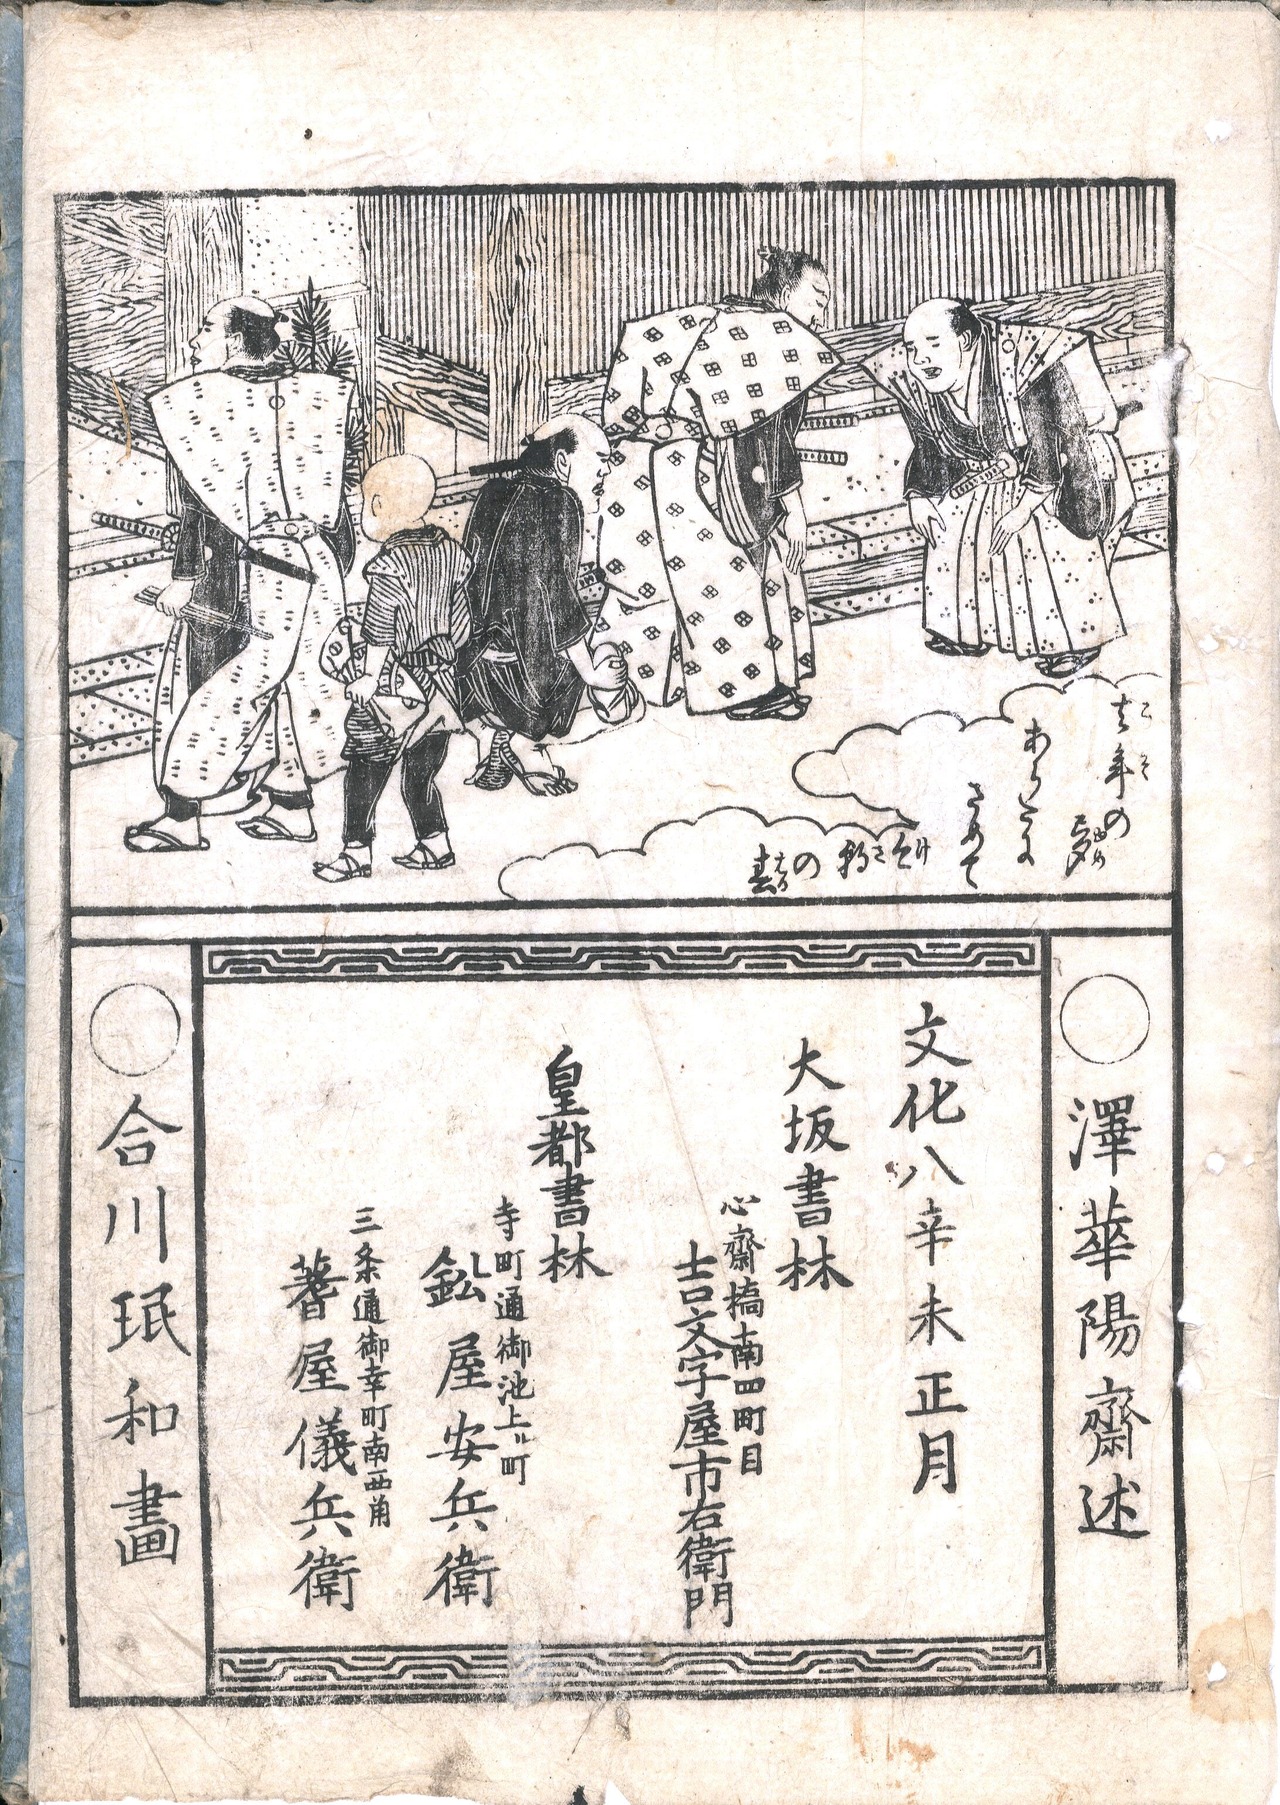 去年の
夢
あらたに
さめて
今朝の春
こそ
ゆめ
けさ
はる
澤華陽齋述
文化八辛未正月
大坂書林
心齋橋南四町目
吉文字屋市右衛門
皇都書林
寺町通御池上ル町
鈆屋安兵衛
三条通御幸町南西角
蓍屋儀兵衛
合川珉和畫